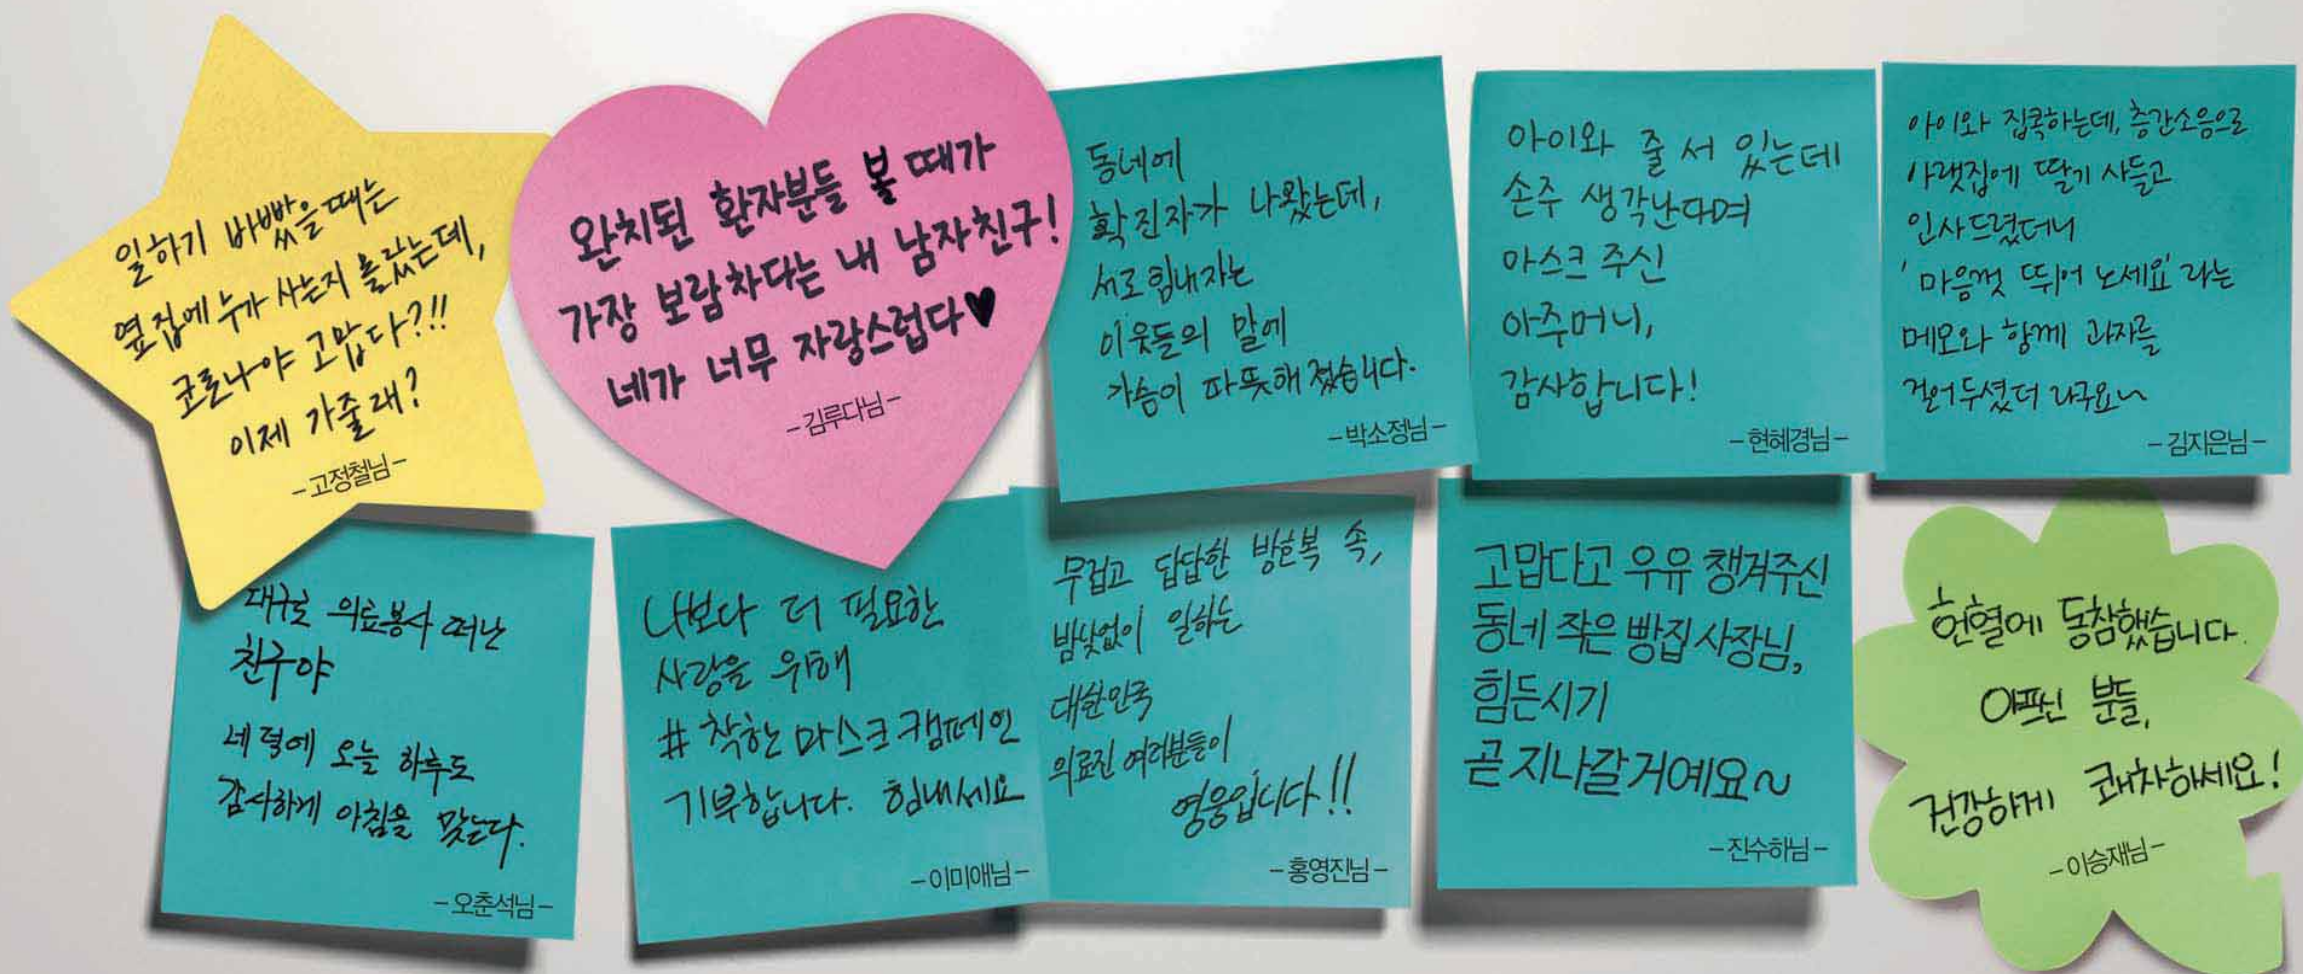 일하기 바빴을 때는
옆집에 누가 사는지 몰랐는데,
코로나야 고맙다?!!
이제 가줄래?
-고정철님-
완치된 환자분들 볼 때가
가장 보람차다는 내 남자친구!
네가 너무 자랑스럽다♥
-김루다님-
동네에
확진자가 나왔는데,
서로 힘내자는
이웃들의 말에
가슴이 따뜻해졌습니다.
-박소정님-
아이와 줄 서 있는데
손주 생각난다며
마스크 주신
아주머니,
감사합니다!
-현혜경님-
아이와 집콕하는데, 층간소음으로
아랫집에 딸기 사들고
인사드렸더니
'마음껏 뛰어 노세요'라는
메모와 함께 과자를
걸어두셨더라구요~
-김지은님-
대구로 의료봉사 떠난
친구야
네 덕에 오늘 하루도
감사하게 아침을 맞는다.
-오춘석님-
나보다 더 필요한
사람을 위해
#착한마스크캠페인
기부합니다. 힘내세요
-이미애님-
무겁고 답답한 방호복 속,
밤낮없이 일하는
대한민국
의료진 여러분들이
영웅입니다!!
-홍영진님-
고맙다고 우유 챙겨주신
동네 작은 빵집 사장님,
힘든시기
곧 지나갈거예요~
-진수하님-
헌혈에 동참했습니다.
아프신 분들,
건강하게 쾌차하세요!
-이승재님-